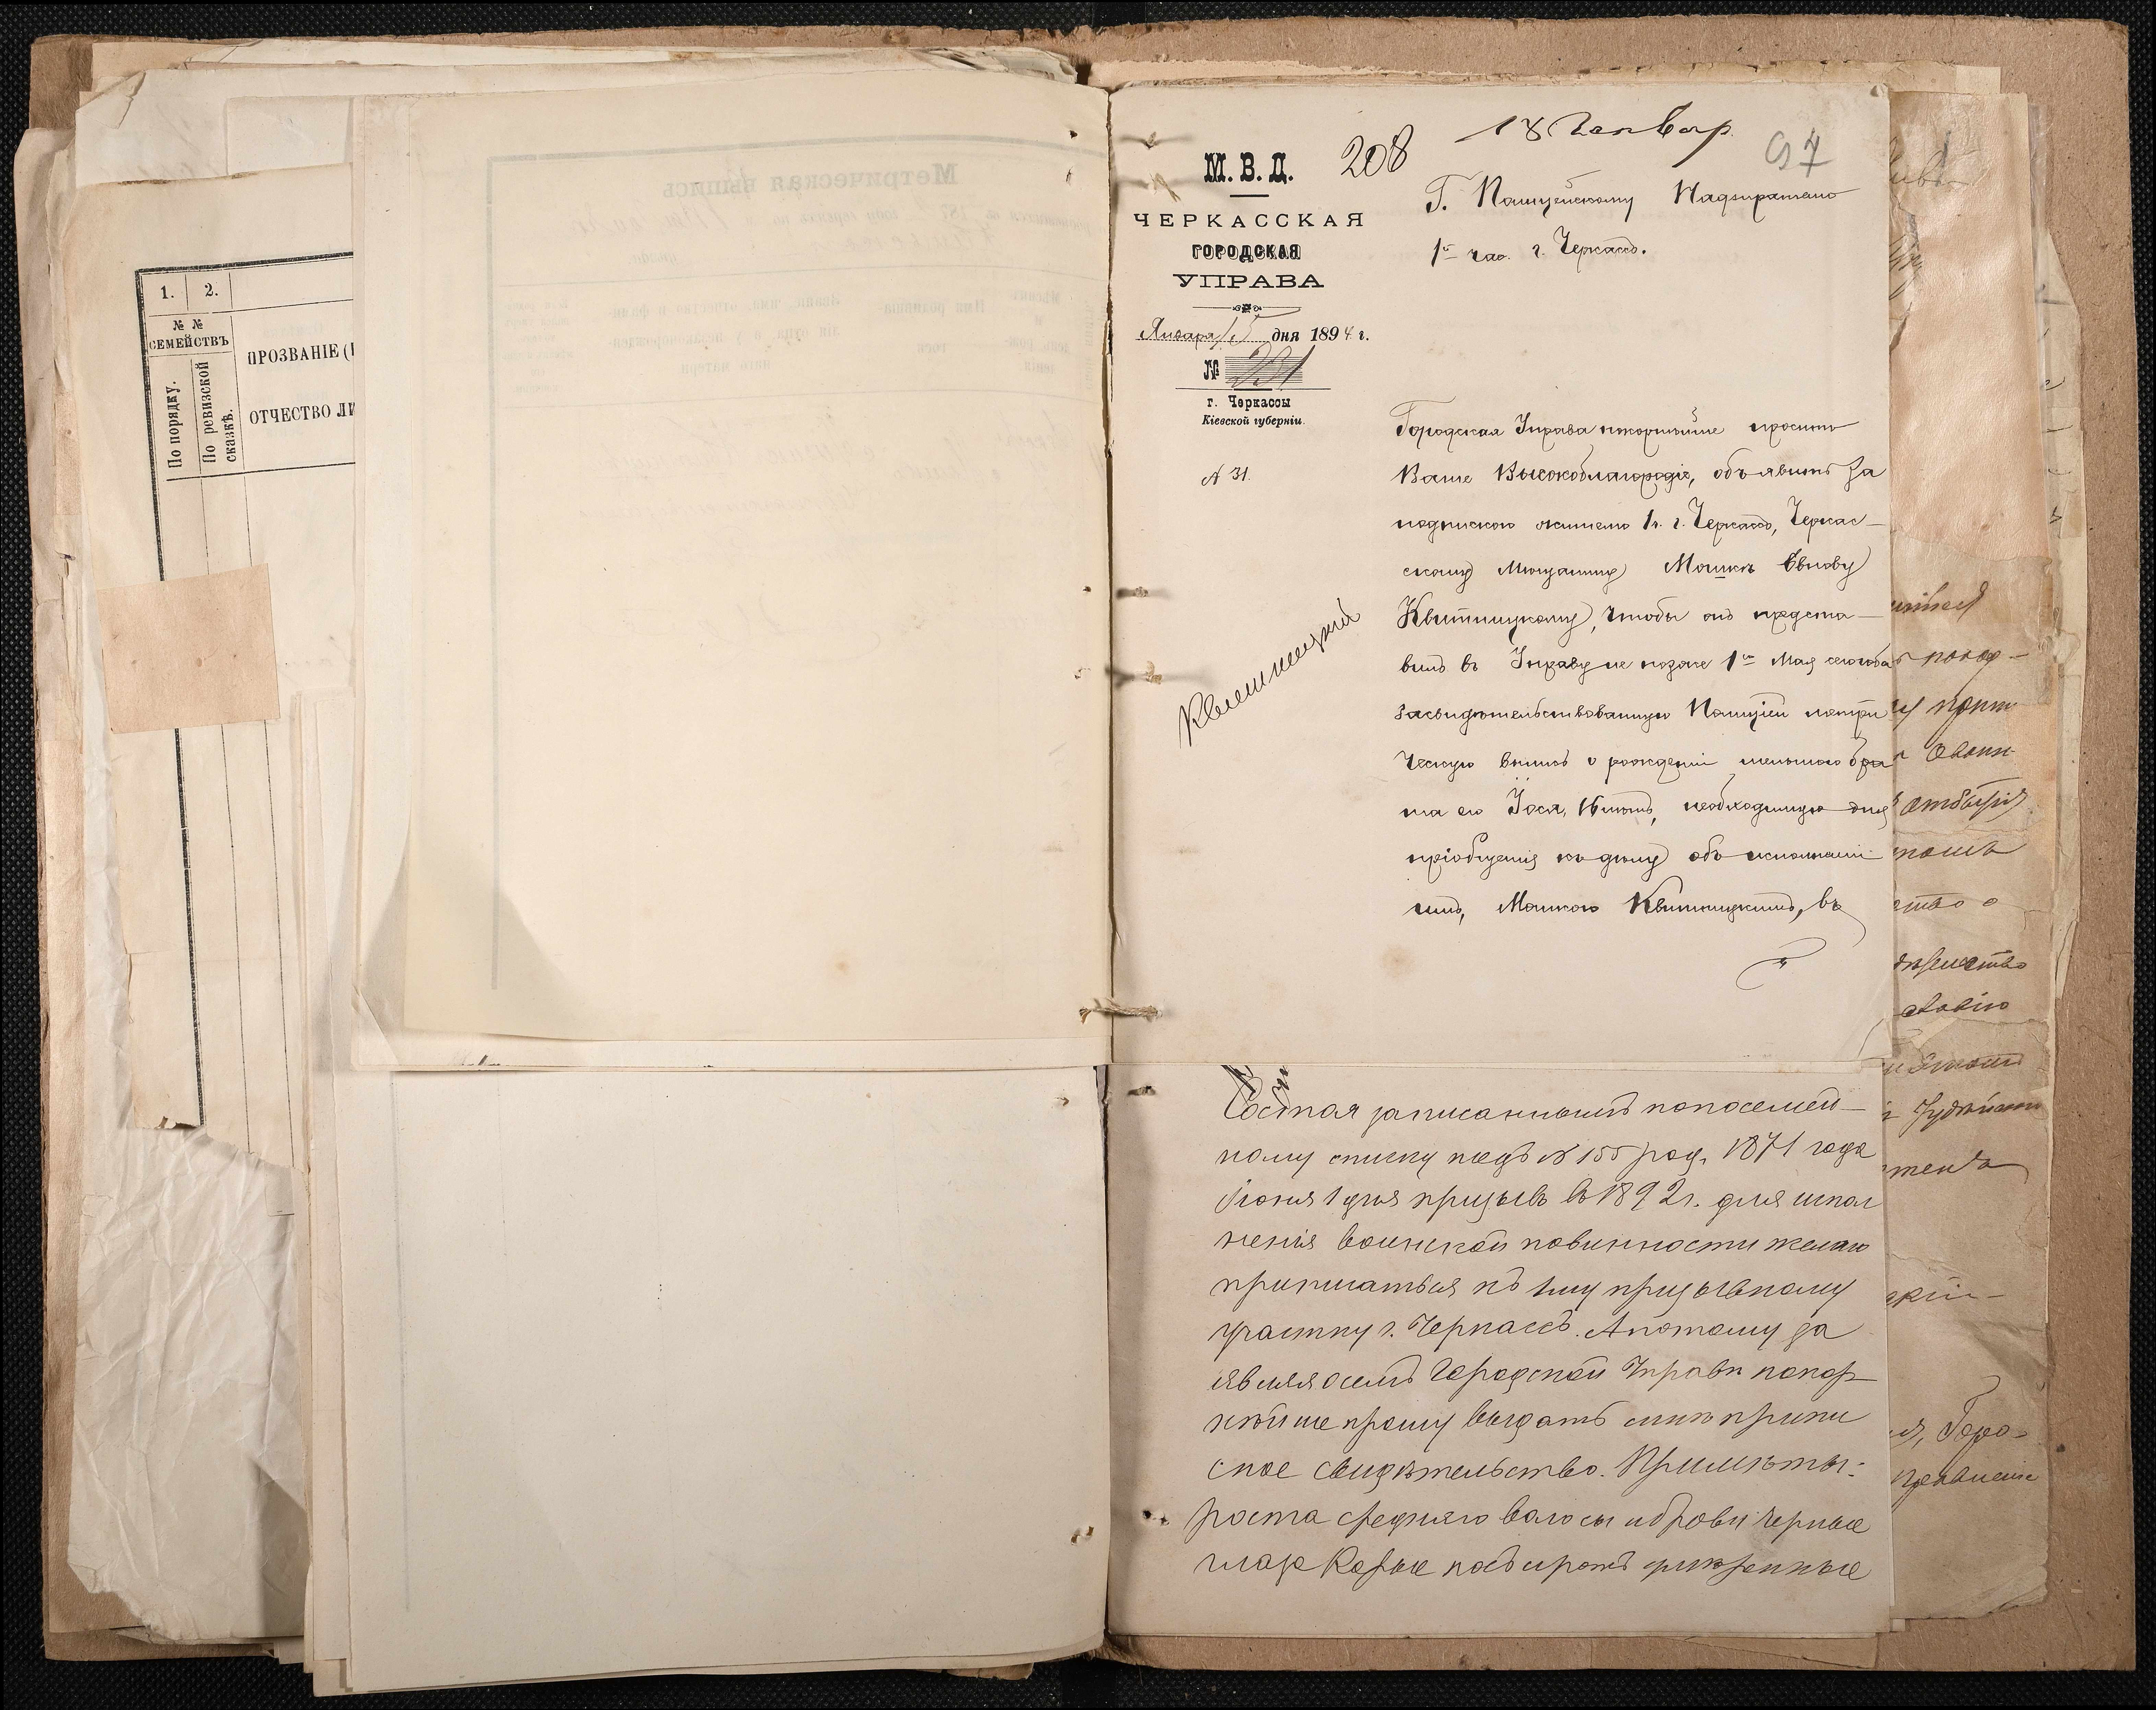 1. 2.
№ №
СЕМЕЙСТВЪ
По порядку.
По ревизской
сказкѣ.
ПРОЗВАНІЕ (
ОТЧЕСТВО ЛИ
Метрическая выпись
М. В. Д.
208
18 Генвар
97
ЧЕРКАССКАЯ
ГОРОДСКАЯ
УПРАВА
Января 15 дня 1894 г.
№ 221
г. Черкассы
Кіевской губерніи.
А 31.
Квитницкій
Г. Полицейскому Надзирателю
1й час. г. Черкассъ.
Городская Управа покорнѣйше проситъ
Ваше Высокоблагородіе, объявить за
подпискою жителю г. Черкассъ, Черкас-
скому Мѣщанину Мошкѣ
Квитницкому, чтобы онъ предста-
вилъ въ Управу не позже 1го Мая сего года
засвидѣтельствованную Полиціей метри
ческую выпись о рожденіи меньшого бра
та его необходимую для
пріобщенія къ дѣлу объ исполненіи
имъ, Мошкою Квитницкимъ, въ
Состоя записаннымъ по посемей-
ному списку подъ № 155 род. 1871 года
Іюня 1 дня призывъ въ 1892 г. для испол
ненія воинской повинности желаю
приписаться къ 1му призывному
участку г. Черкассъ. А потому за
являя о семъ Городской Управѣ покор
нѣйше прошу выдать мнѣ припи
сное свидѣтельство. Примѣты:
роста средняго волосы и брови черные
глаза Карые
отбытія
ство о
Горо-